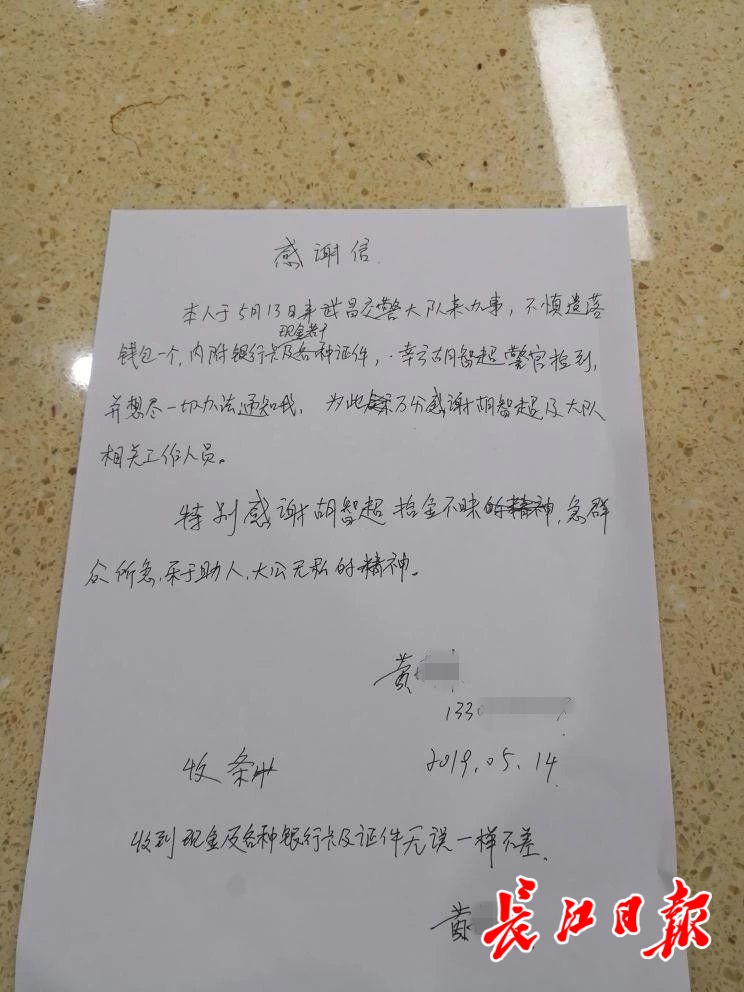 感谢信
本人于5月13日来武昌交警大队来办事，不慎遗落
现金若干
钱包一个，内附银行卡及各种证件，幸亏胡智超警官捡到，
并想尽一切办法通知我，为此万分感谢胡智超及大队
相关工作人员。
特别感谢胡智超拾金不昧的精神，急群
众所急，乐于助人，大公无私的精神。
黄
133
2019.05.14
收条
收到现金及各种银行卡及证件无误一样不差。
黄
长江日报